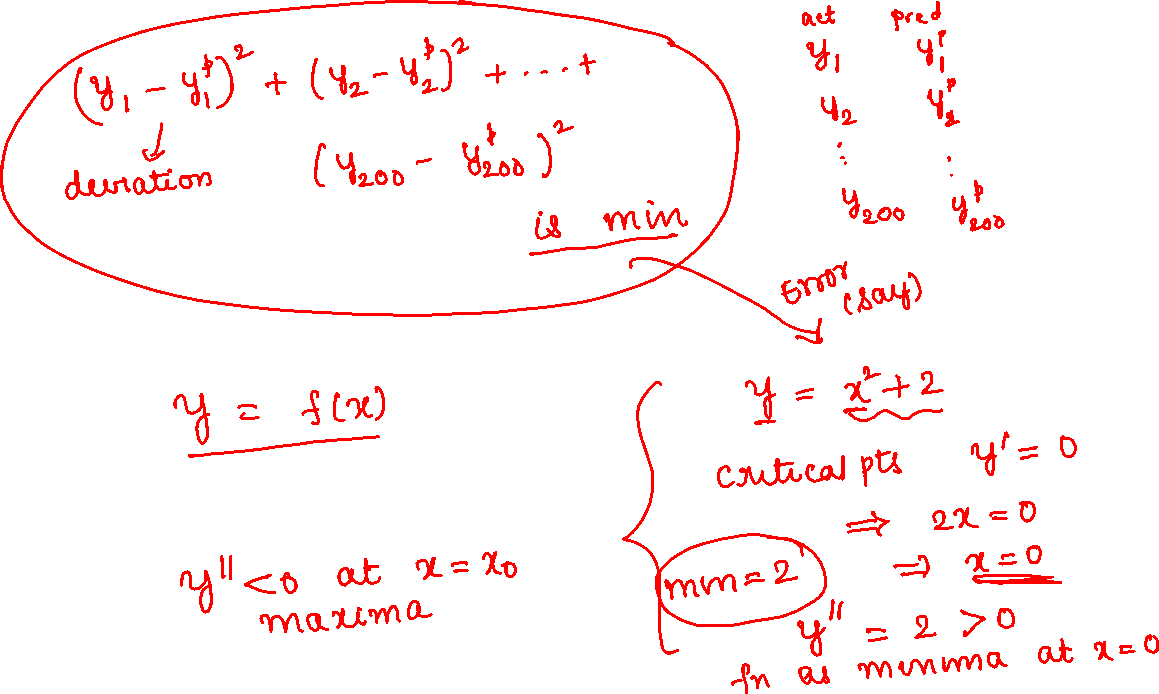 (y₁ - y₁ᵖ)² + (y₂ - y₂ᵖ)² + ... +
deviation
(y₂₀₀ - y₂₀₀ᵖ)²
is min
act pred
y₁ y₁ᵖ
y₂ y₂ᵖ
: :
y₂₀₀ y₂₀₀ᵖ
Error
(say)
y = f(x)
y'' < 0 at x = x₀
maxima
y = x² + 2
critical pts y' = 0
⇒ 2x = 0
min = 2 ⇒ x = 0
y'' = 2 > 0
fn as minima at x = 0